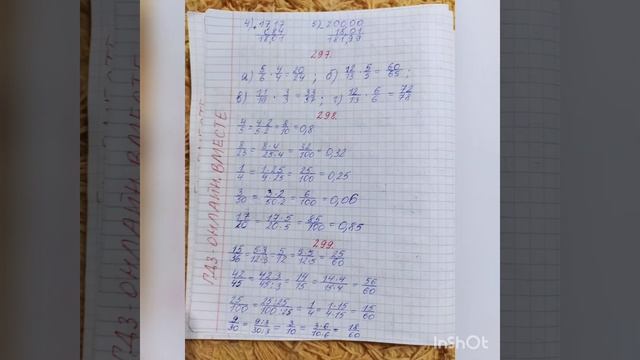 4) 17,17 5) 200,00
0,84 18,01
18,01 181,99
297.
а) 5/6 · 4/4 = 20/24 ; б) 12/13 · 5/5 = 60/65 ;
в) 11/ · 3/3 = 33/ ; г) 12/13 · 6/6 = 72/78
298.
4/5 = 4·2/5·2 = 8/10 = 0,8
8/25 = 8·4/25·4 = 32/100 = 0,32
1/4 = 1·25/4·25 = 25/100 = 0,25
3/50 = 3·2/50·2 = 6/100 = 0,06
17/20 = 17·5/20·5 = 85/100 = 0,85
299.
15/36 = 5·3/12·3 = 5/12 = 5·5/12·5 = 25/60
42/45 = 42:3/45:3 = 14/15 = 14·4/15·4 = 56/60
25/100 = 25:25/100:25 = 1/4 = 1·15/4·15 = 15/60
9/30 = 9:3/30:3 = 3/10 = 3·6/10·6 = 18/60
ГДЗ·ОНЛАЙН ВМЕСТЕ
InShOt